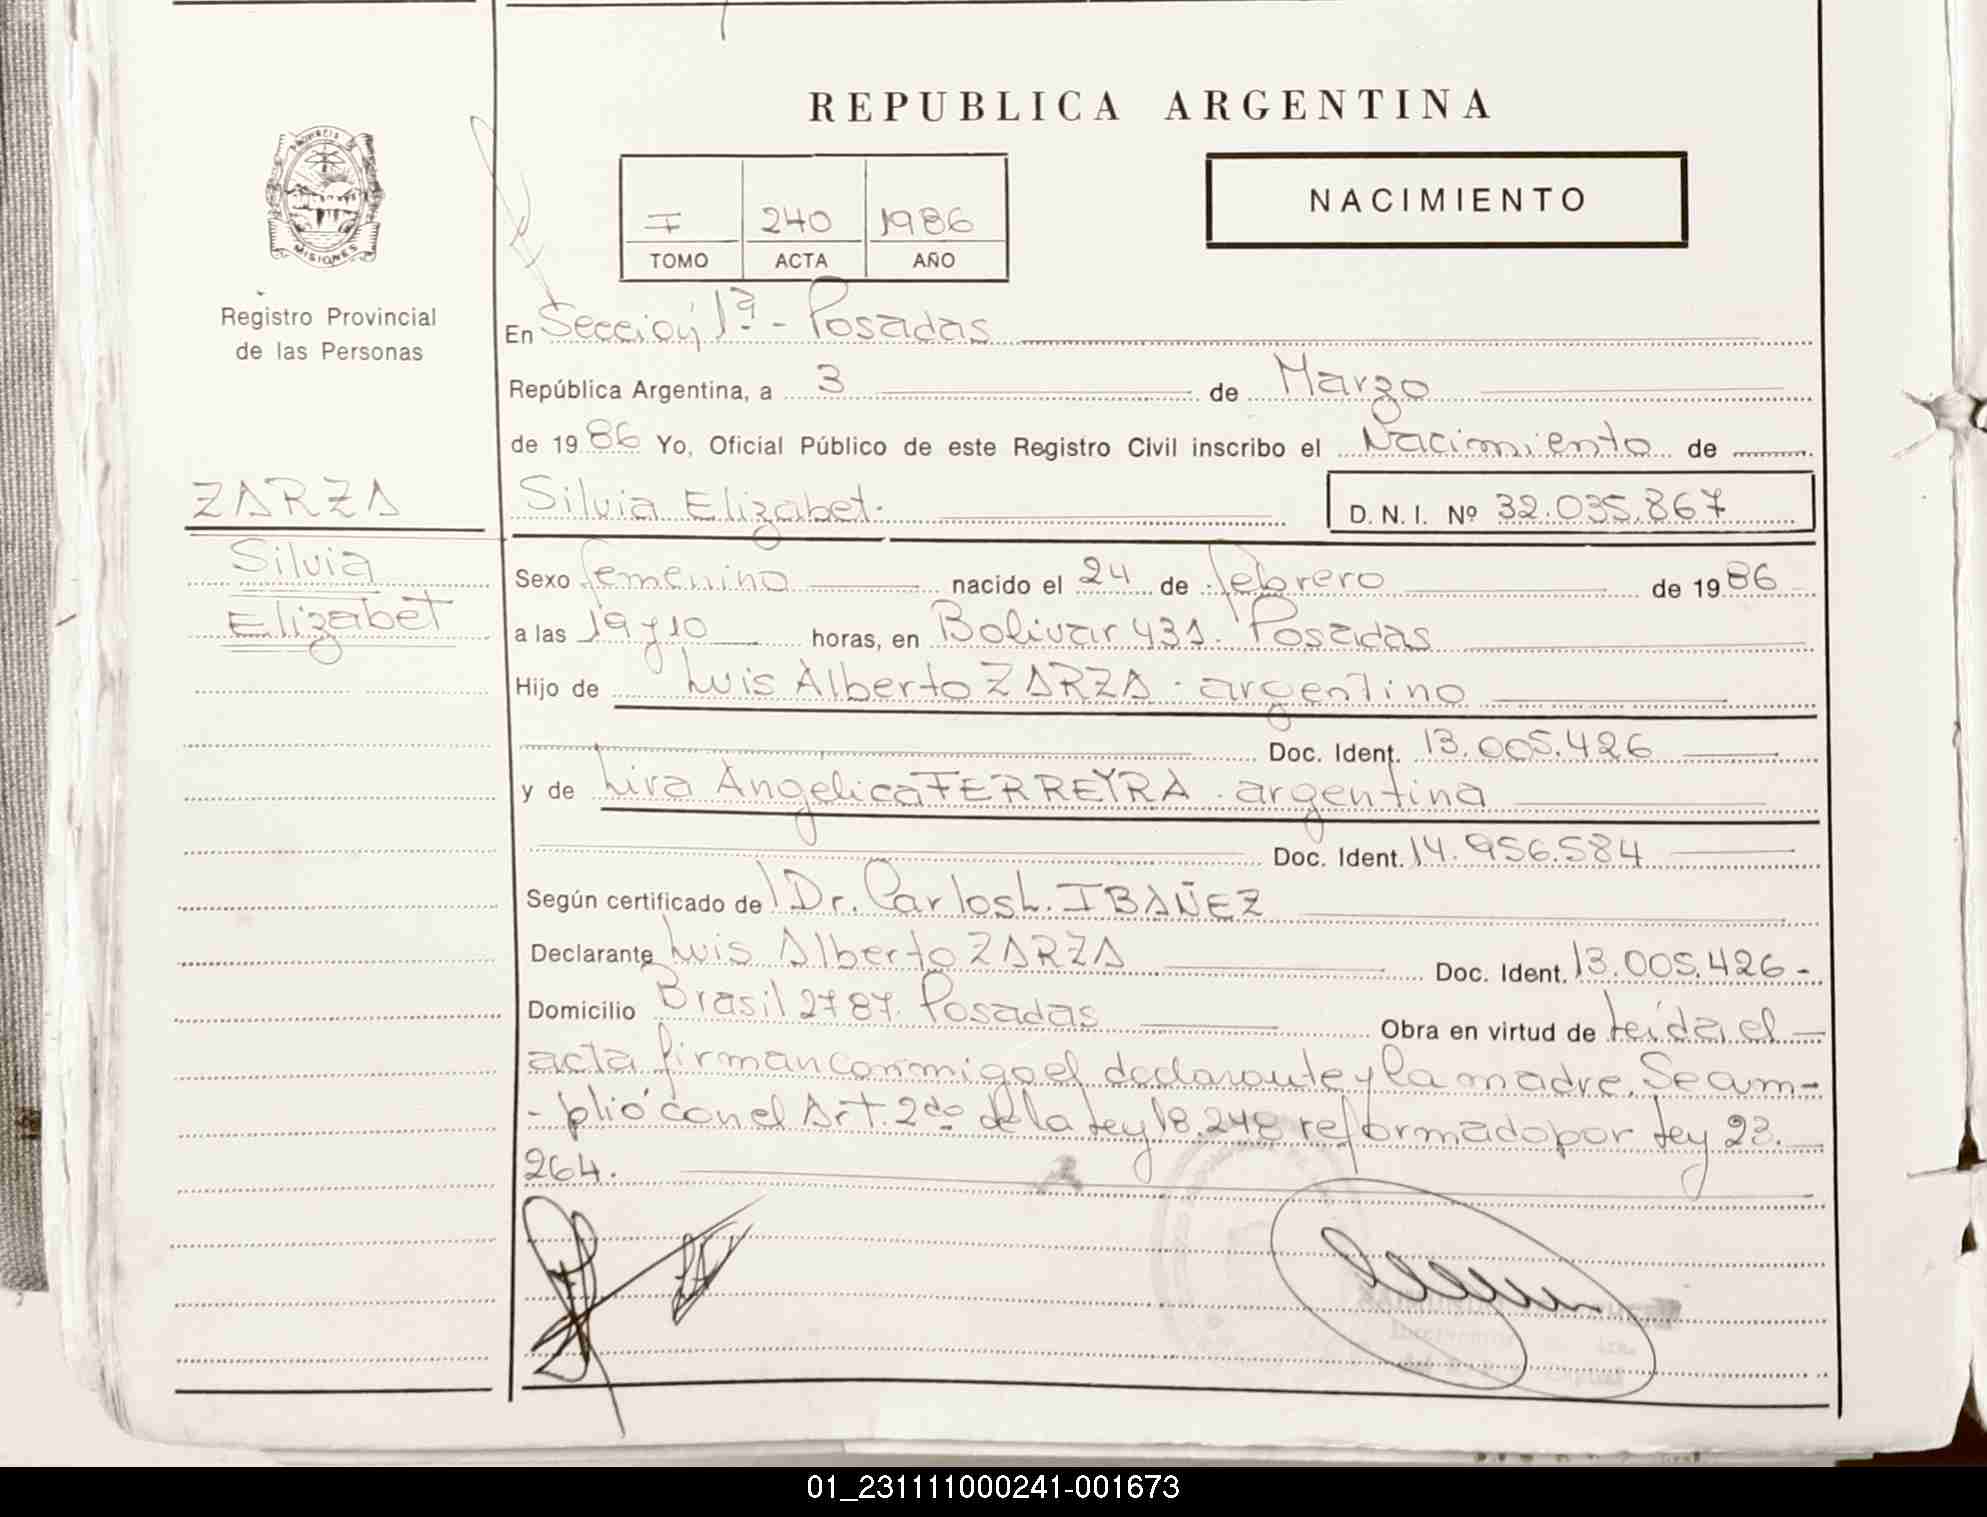 REPUBLICA ARGENTINA
PROVINCIA DE
MISIONES
I 240 1986
TOMO ACTA AÑO
NACIMIENTO
Registro Provincial
de las Personas
En Sección 1ª - Posadas
República Argentina, a 3 de Marzo
de 1986 Yo, Oficial Público de este Registro Civil inscribo el Nacimiento de
ZARZA
Silvia Elizabet.
D. N. I. Nº 32.035.867
Silvia
Elizabet
Sexo femenino nacido el 24 de febrero de 1986
a las 19 y 10 horas, en Bolivar 431. Posadas
Hijo de Luis Alberto ZARZA. argentino
Doc. Ident. 13.005.426
y de Lira Angelica FERREYRA. argentina
Doc. Ident. 14.956.584
Según certificado de Dr. Carlos L. IBAÑEZ
Declarante Luis Alberto ZARZA Doc. Ident. 13.005.426-
Domicilio Brasil 2787. Posadas Obra en virtud de Leída el
acta firman conmigo el declarante y la madre. Se cum-
-plió con el Art. 2do de la Ley 18.248 reformado por Ley 23.
264.
01_231111000241-001673